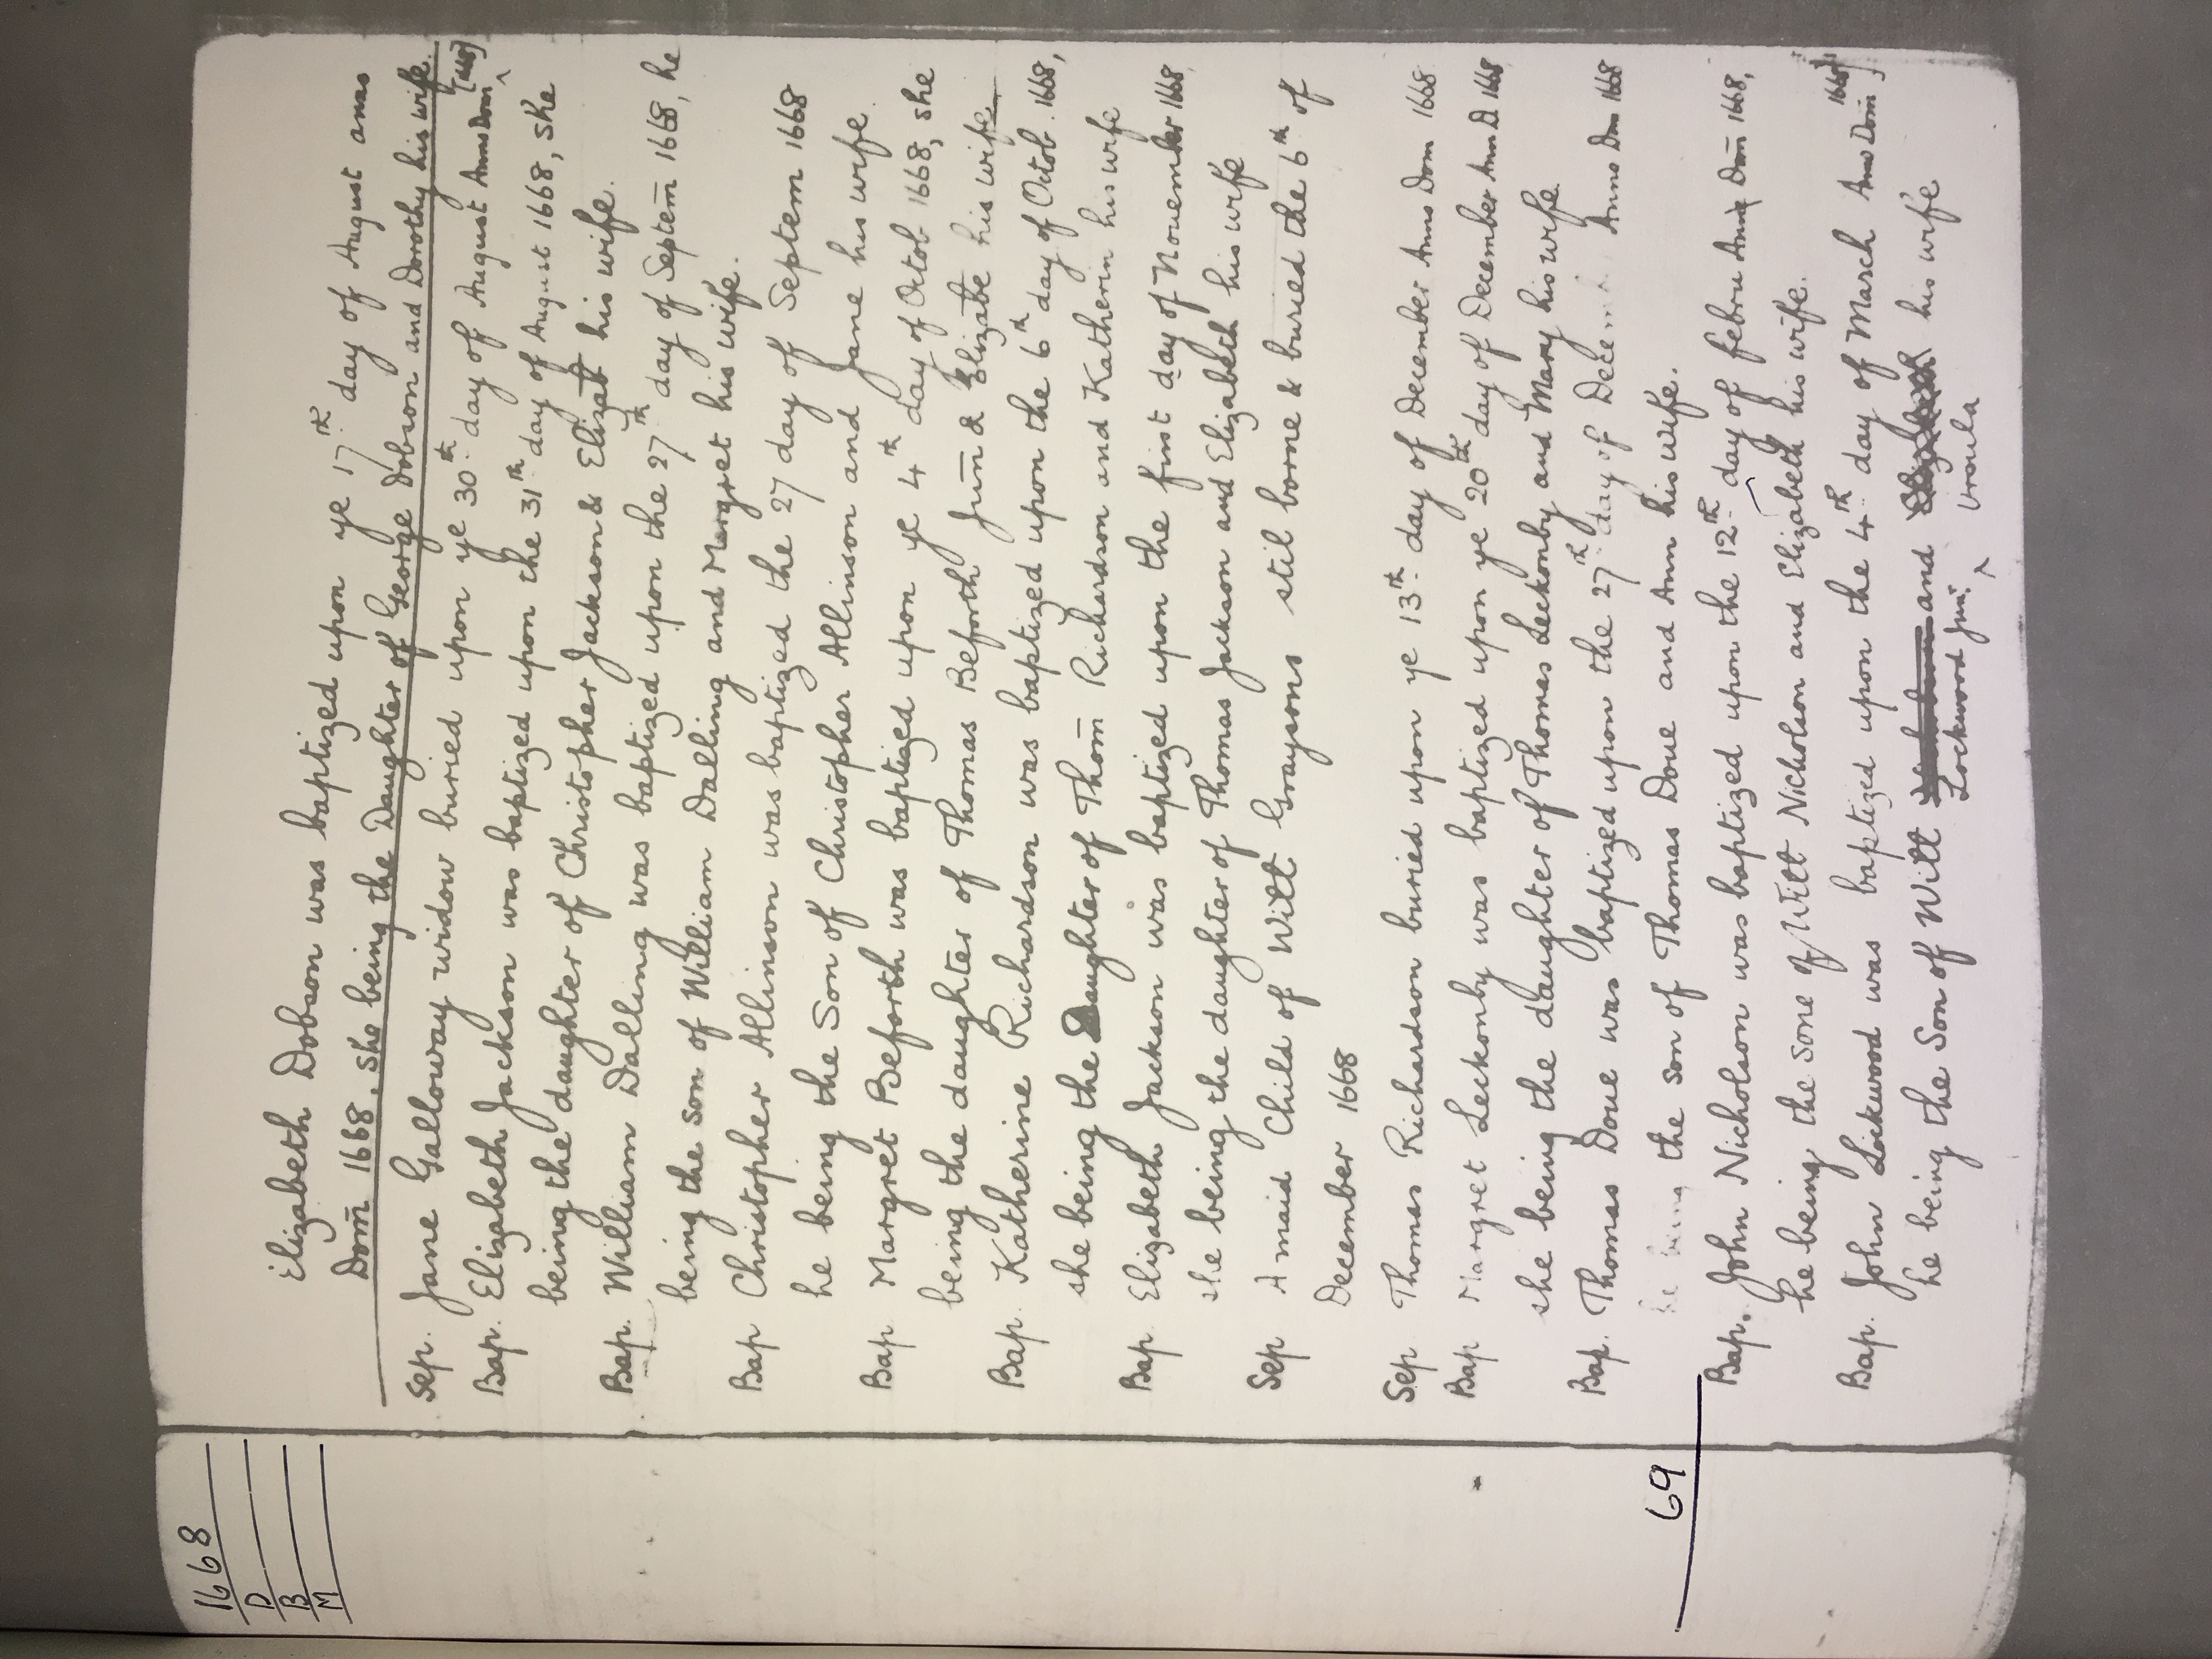 1668
D
B
M
Elizabeth Dobson was baptized upon ye 17th day of August anno
Dom̄ 1668, she being the Daughter of George Dobson and Dorothy his wife.
Sep. Jane Galloway widow buried upon ye 30th day of August Anno Dom [1668]
Bap. Elizabeth Jackson was baptized upon the 31th day of August 1668, she
being the daughter of Christopher Jackson & Elizabt his wife.
Bap. William Dalling was baptized upon the 27th day of Septem̄ 1668, he
being the son of William Dalling and Margret his wife.
Bap Christopher Allinson was baptized the 27 day of Septem 1668
he being the Son of Christopher Allinson and Jane his wife.
Bap Margret Beforth was baptized upon ye 4th day of Octob 1668, she
being the daughter of Thomas Beforth Jun̄ & Elizabe his wife
Bap. Katherine Richardson was baptized upon the 6th day of Octob. 1668,
she being the Daughter of Thom̄ Richardson and Katherin his wife
Bap Elizabeth Jackson was baptized upon the first day of Nouember 1668,
she being the daughter of Thomas Jackson and Elizabeth his wife
Sep A maid Child of Witt Graysons stil borne & buried the 6th of
December 1668
Sep Thomas Richardson buried upon ye 13th day of December Anno Dom 1668
Bap Margret Leckonby was baptized upon ye 20th day of December Ann D 1668,
she being the daughter of Thomas Leckonby and Mary his wife
Bap. Thomas Doue was baptized upon the 27th day of Decem Anno Dom 1668
he being the son of Thomas Doue and Ann his wife.
69
Bap. John Nicholson was baptized upon the 12th day of febru Dom̄ 1668,
he being the sone of Witt Nicholson and Elizabeth his wife.
Bap. John Lockwood was baptized upon the 4th day of March Anno Dom̄ 1668
he being the Son of Witt and his wife
Lockwood Jun: Vrsula